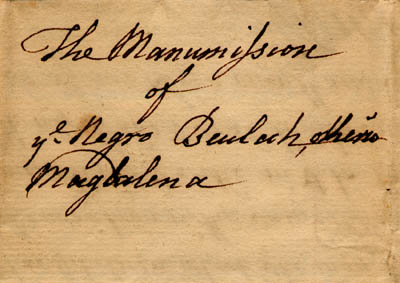 The Manumiſsion
of
yᵉ. Negro Beulah,
Magdalena